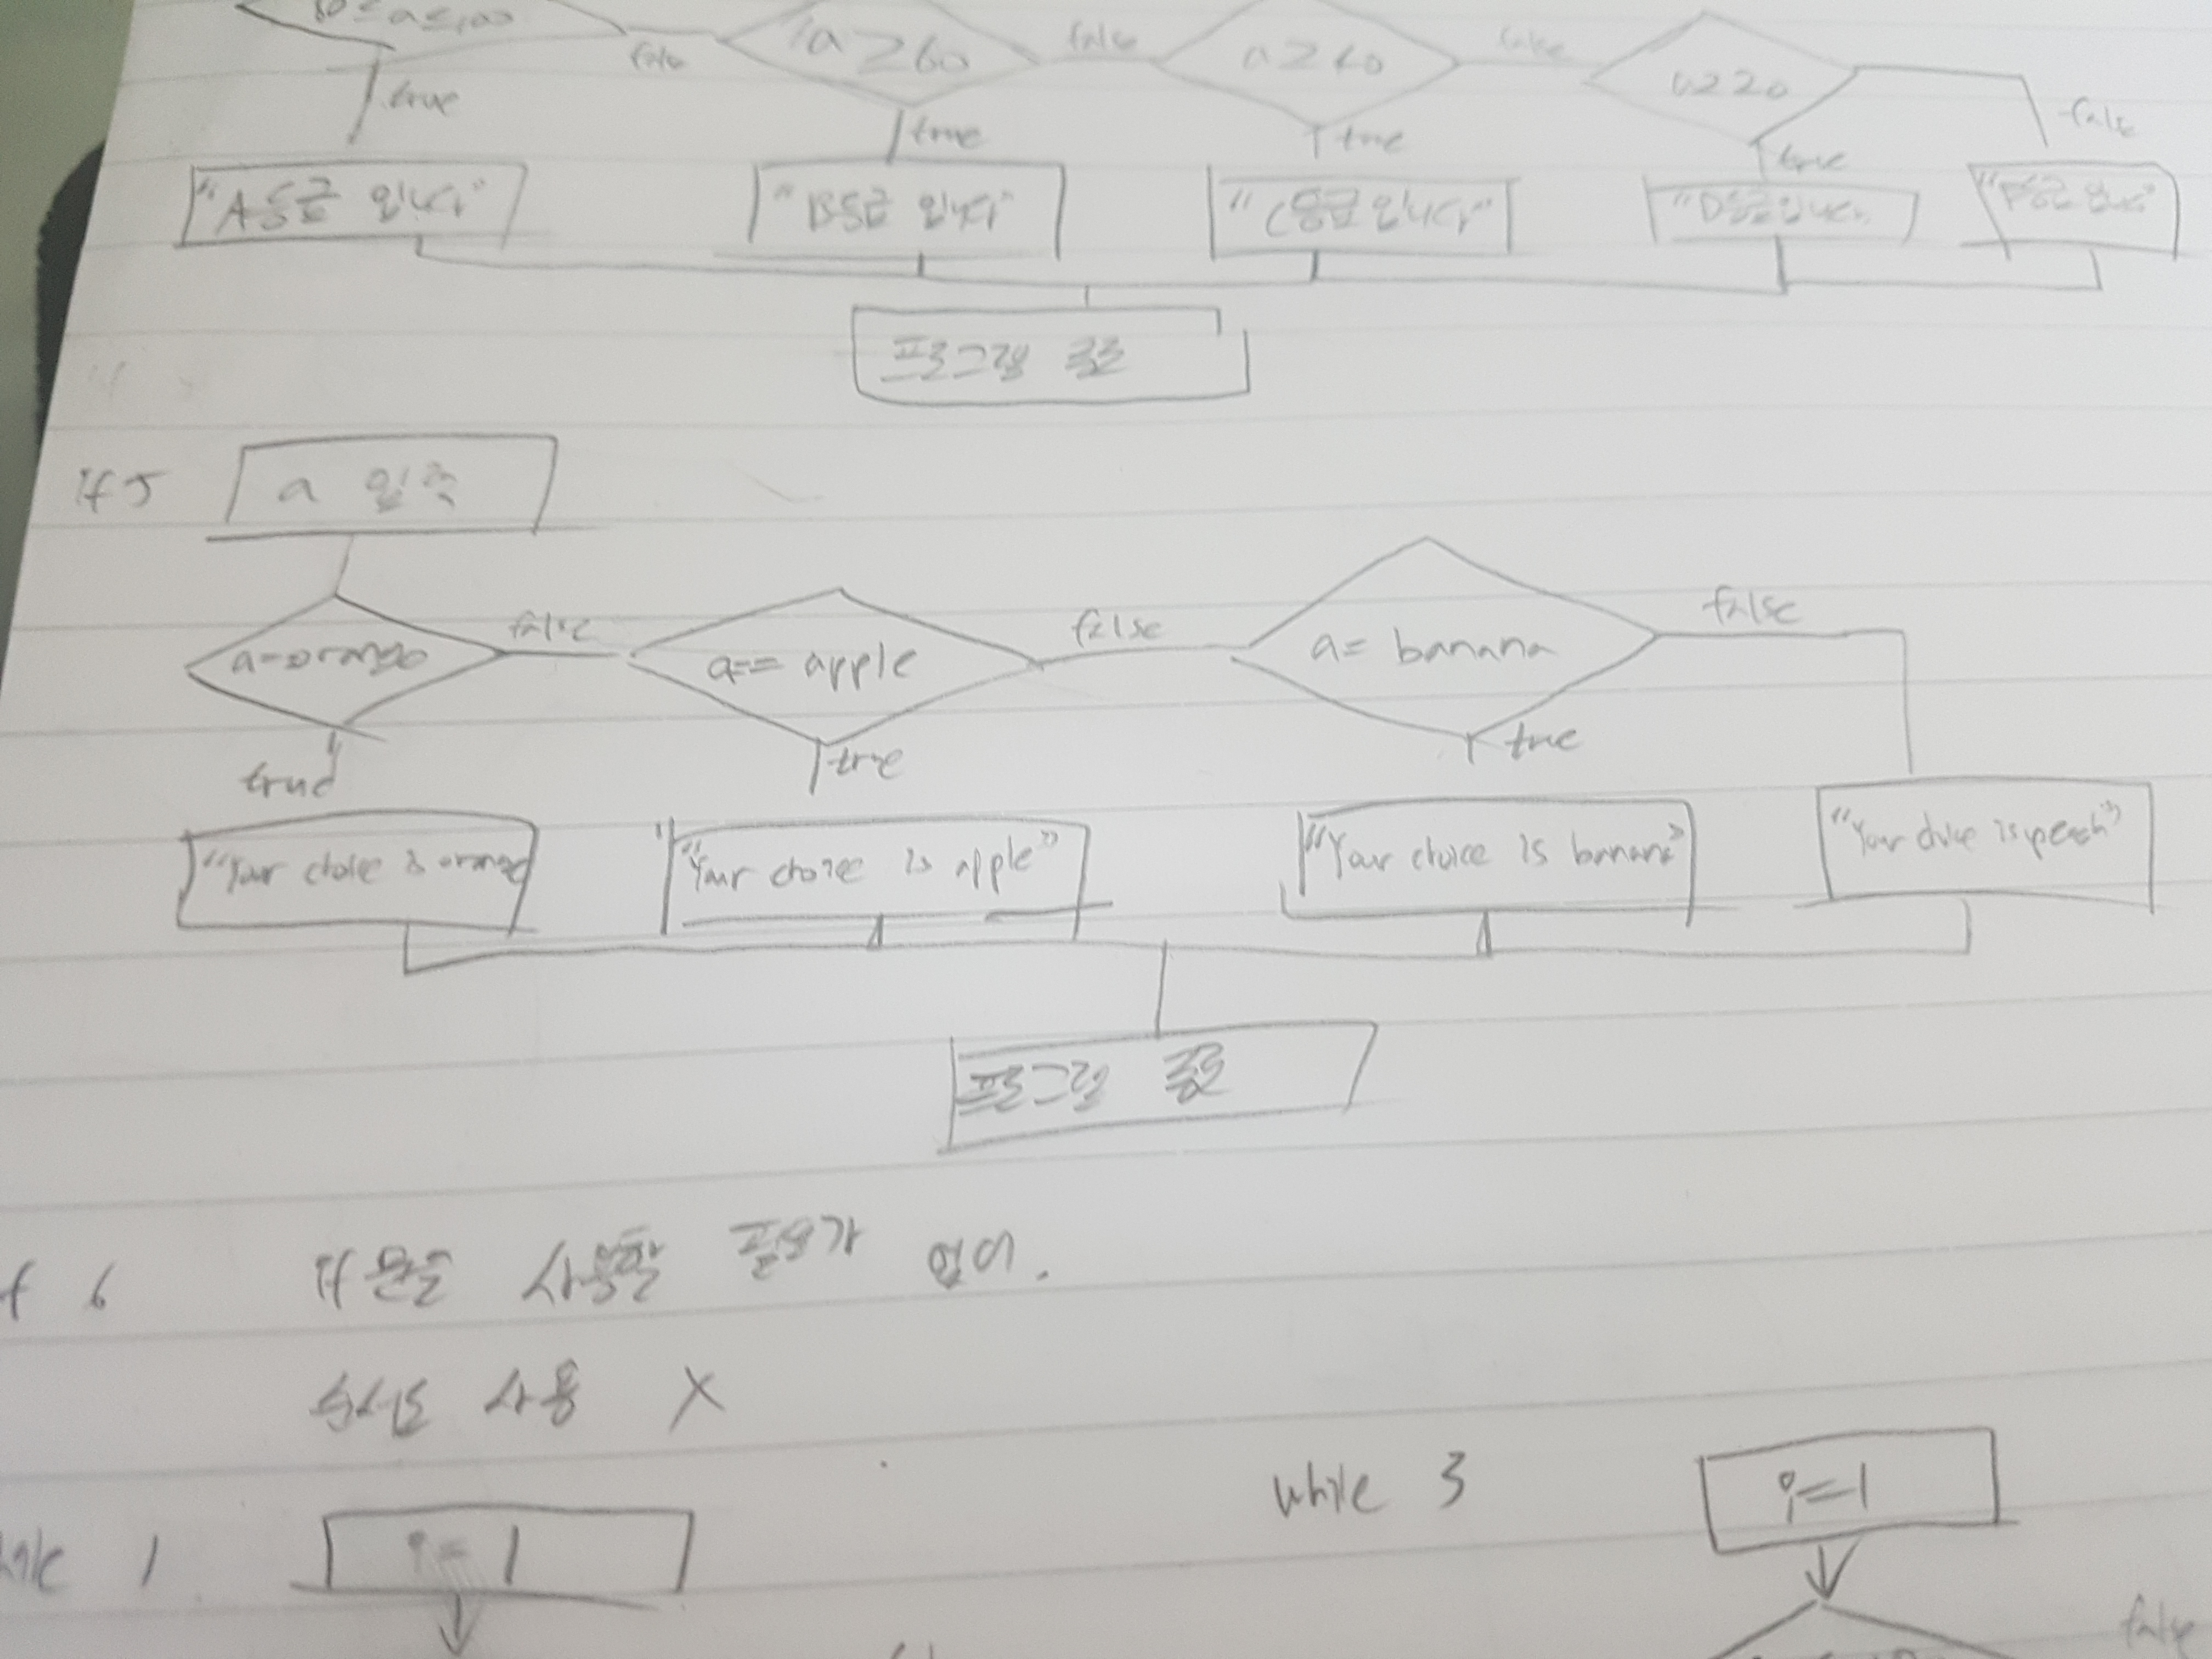 80≤a≤100
a≥60
a≥40
a≥20
false
false
false
false
true
true
true
true
"A등급 입니다"
"B등급 입니다"
"C등급 입니다"
"D등급입니다"
프로그램 종료
if 5
a 입력
a=orange
false
a== apple
false
a= banana
false
true
true
true
"Your choice is orange
"Your choice is apple"
"Your choice is banana"
"Your choice is peach"
프로그램 종료
f 6
if 문을 사용할 필요가 없어.
순서도 사용 X
while 3
i=1
1
i=1
false